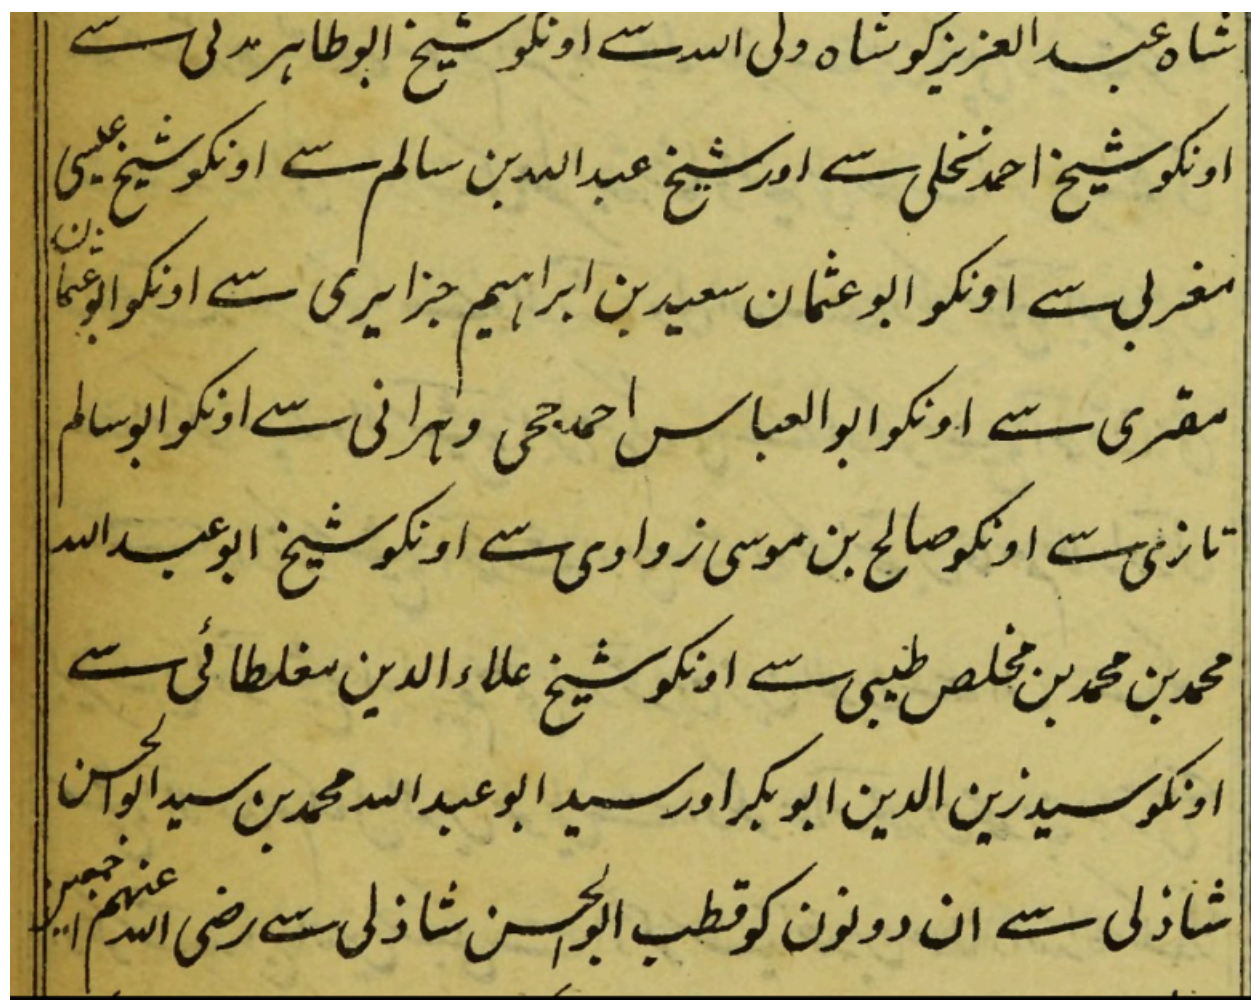 شاہ عبدالعزیز کو شاہ ولی اللہ سے اونکو شیخ ابوطاہر مدنی سے
اونکو شیخ احمد نخلی سے اور شیخ عبداللہ بن سالم سے اونکو شیخ عیسی
مغربی سے اونکو ابو عثمان سعید بن ابراہیم جزایری سے اونکو ابو عثمان
مقری سے اونکو ابو العباس احمد حجی وہرانی سے اونکو ابو سالم
تازی سے اونکو صالح بن موسی زواوی سے اونکو شیخ ابو عبداللہ
محمد بن محمد بن مخلص طیبی سے اونکو شیخ علاء الدین مغلطائی سے
اونکو سید زین الدین ابوبکر اور سید ابو عبداللہ محمد بن سید ابوالحسن
شاذلی سے ان دونون کو قطب ابوالحسن شاذلی سے رضی اللہ عنہم اجمعین